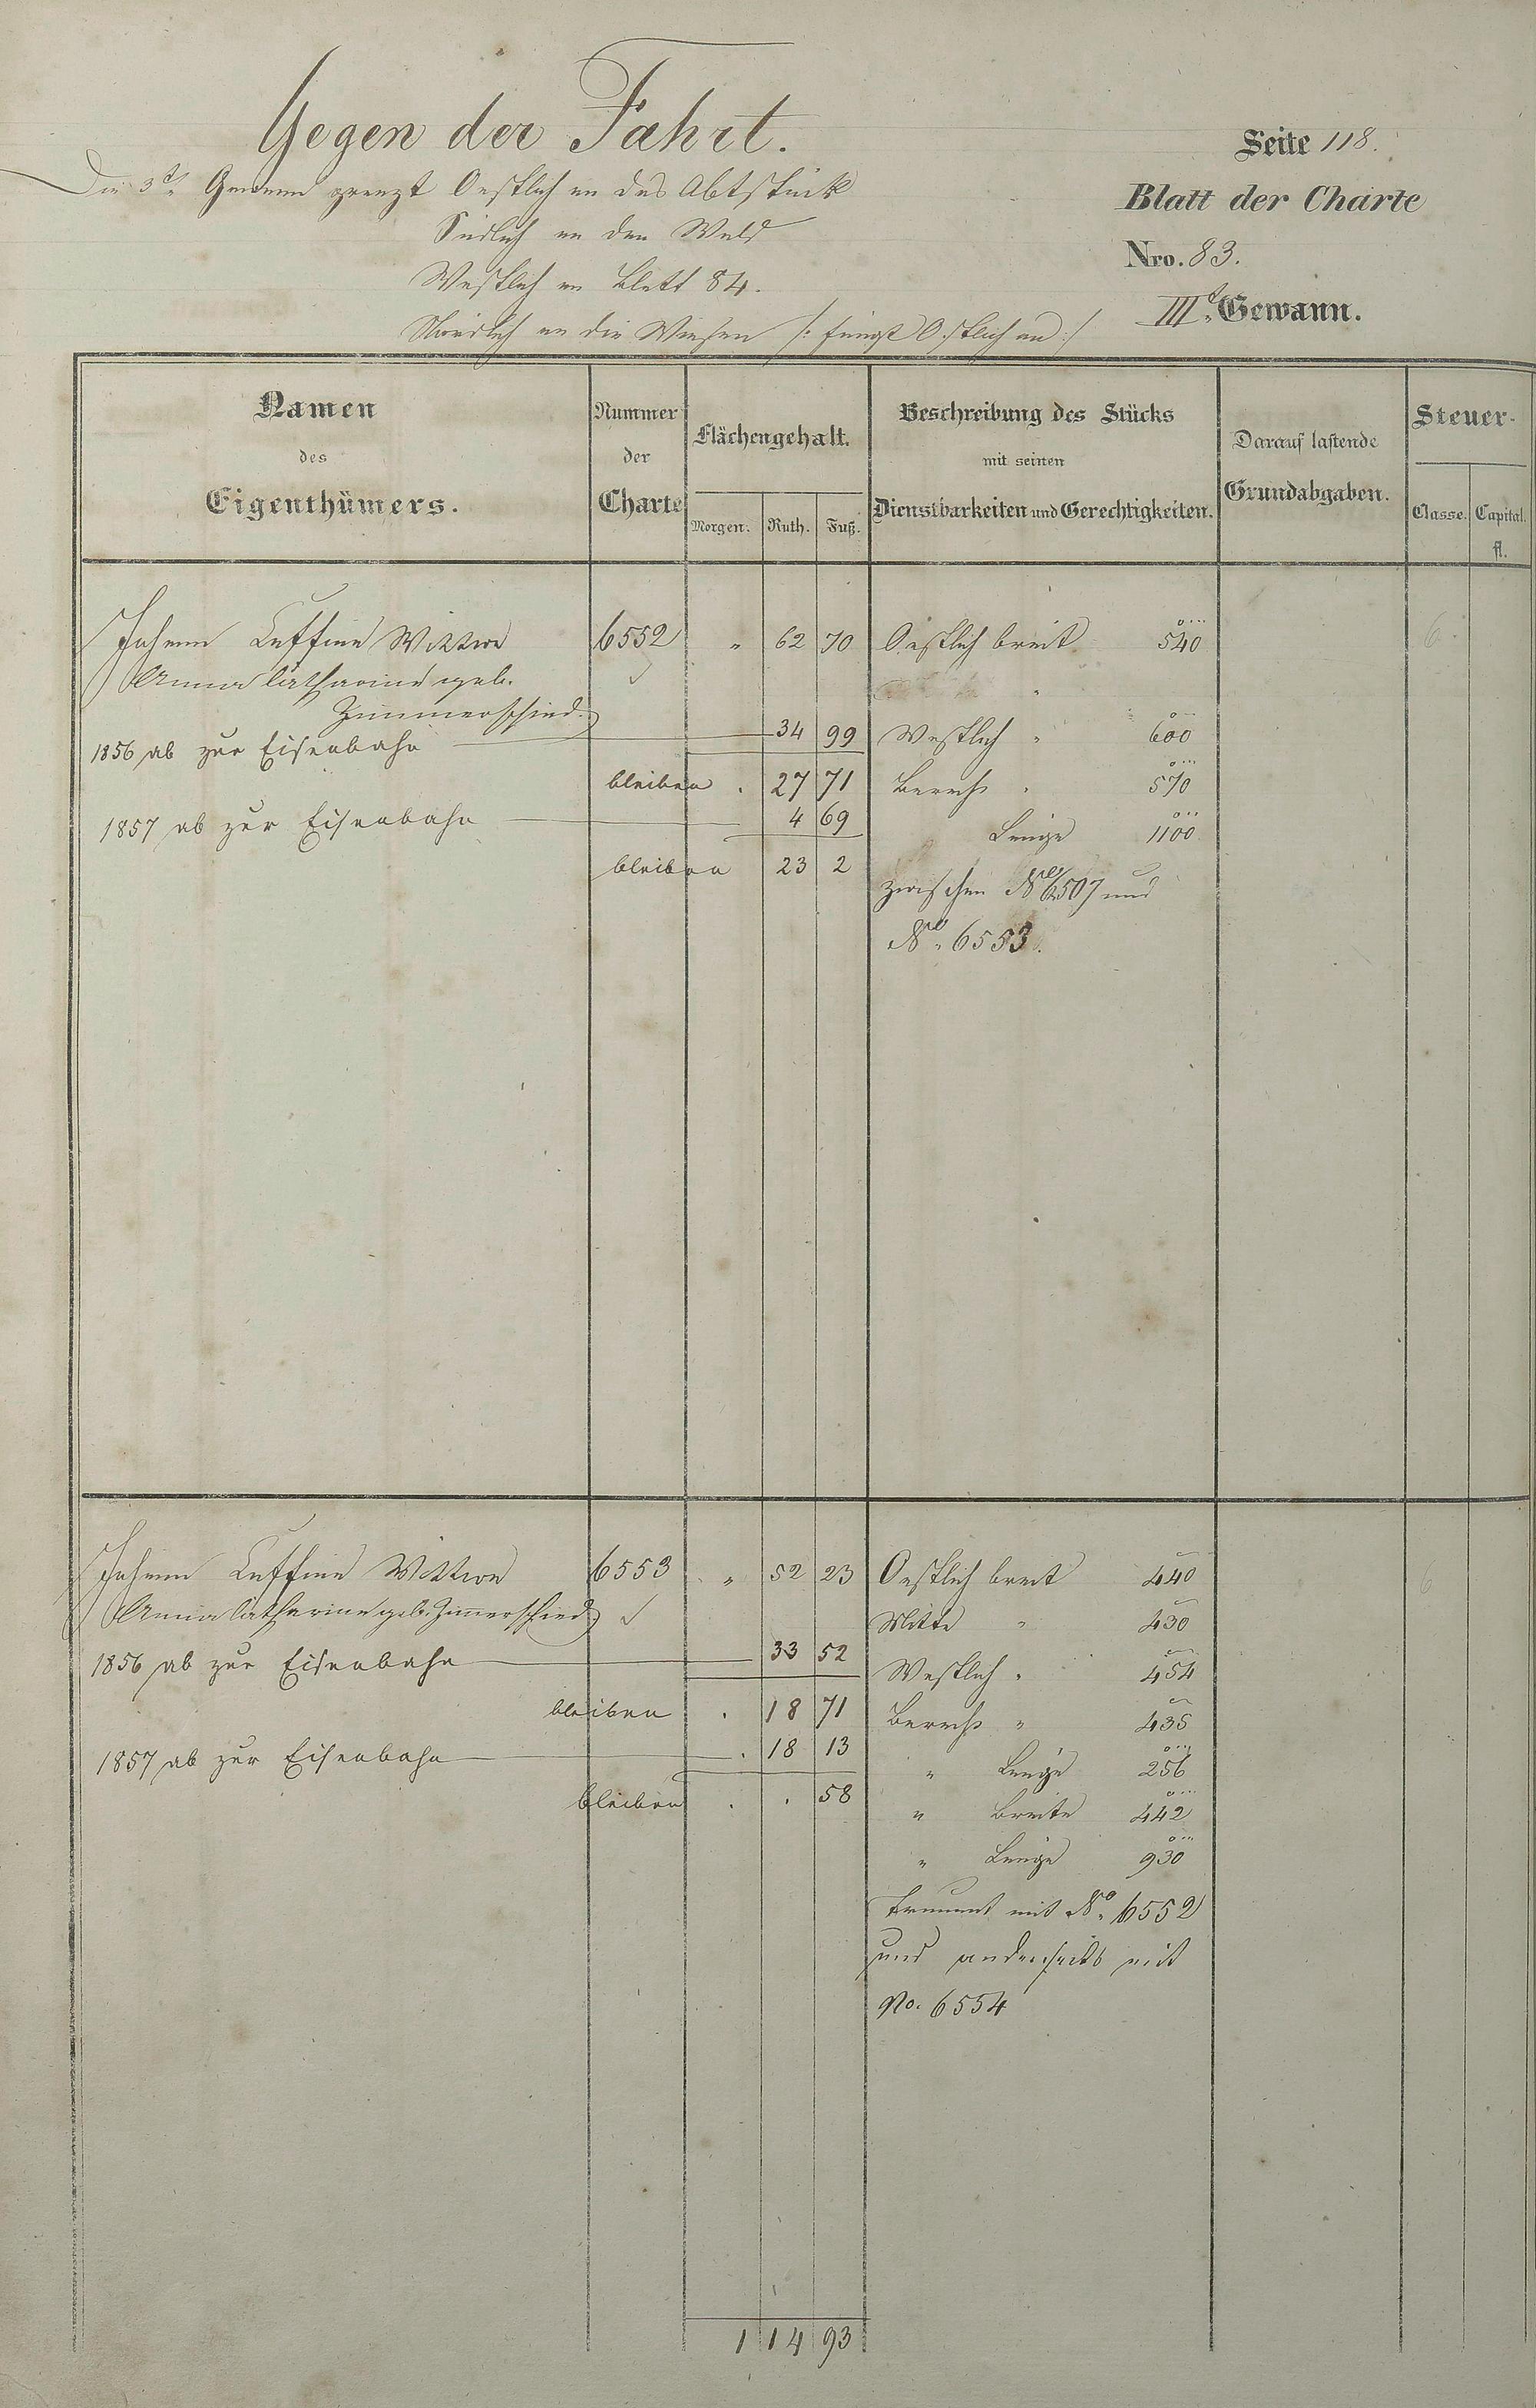 Gegen der Fahrt.
Die 3te Gewann grenzt Oestlich an das Abtstück
Südlich an den Wald
Westlich an Blatt 84.
Nördlich an die Wiesen /: fängt Östlich an :/
Seite 118.
Blatt der Charte
Nro. 83.
IIIte Gewann.
Namen
des
Eigenthümers.
Nummer
der
Charte
Flächengehalt.
Morgen. Ruth. Fuß.
Beschreibung des Stücks
mit seinen
Dienstbarkeiten und Gerechtigkeiten.
Darauf lastende
Grundabgaben.
Steuer-
Classe. Capital.
fl.
Johann Wittwe 6552 " 62 70 Oestlich breit 540 6
Anna Catharina geb.
Zimmerschied.
1856 ab zur Eisenbahn 34 99 Westlich " 600
bleiben . 27 71 " 570
1857 ab zur Eisenbahn 4 69 Länge 1100
bleiben 23 2
zwischen No 6507 und
No. 6553.
Johann Wittwe 6553 " 52 23 Oestlich breit 440 6
Anna Catharina geb. Zimmerschied
Mitte " 430
1856 ab zur Eisenbahn 33 52
Westlich " 454
bleiben . 18 71 " 435
1857 ab zur Eisenbahn . 18 13
" Länge 256
bleiben . . 58 " Breite 442
" Länge 930
kommt mit No. 6552
und anderseits mit
No. 6554
1 14 93